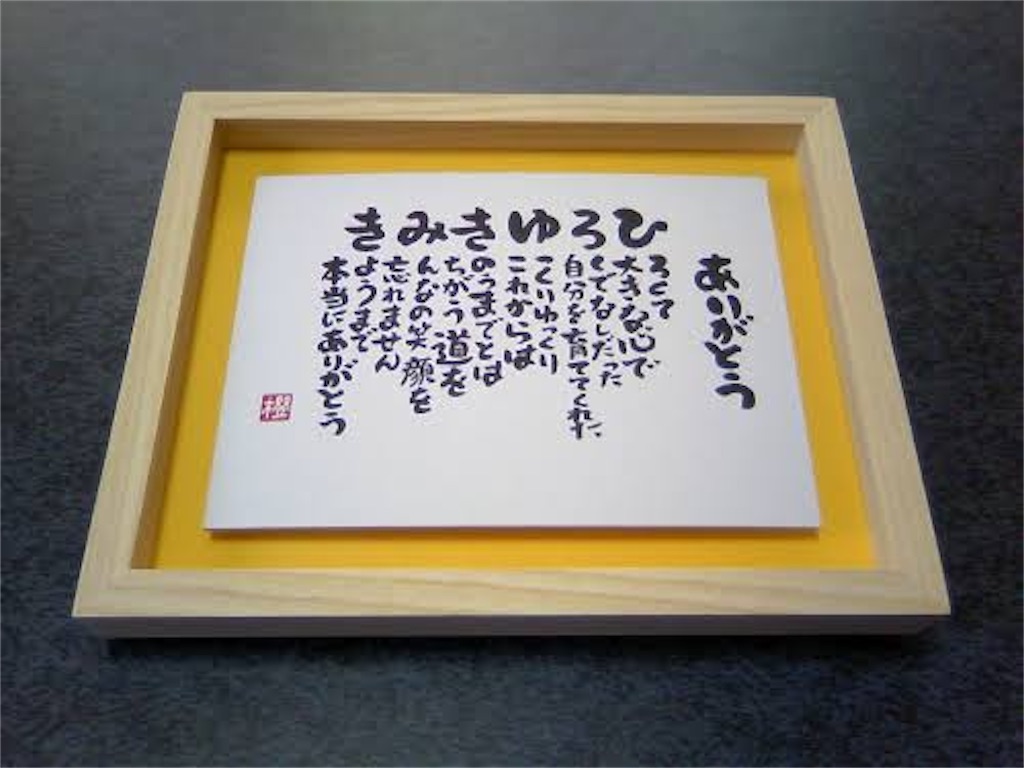 ありがとう
ひろくて
大きな心で
ろくでなしだった
自分を育ててくれた
ゆっくりゆっくり
これからは
きのうまでとは
ちがう道を
みんなの笑顔を
忘れません
きようまで
本当にありがとう
櫻